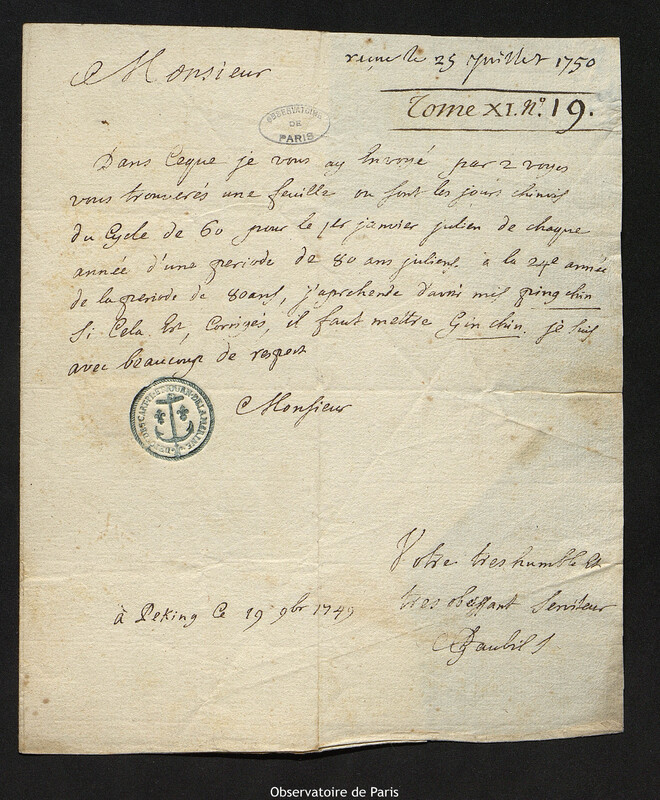 Monsieur
reçue le 25 Juillet 1750
Tome XI. N.º 19.
OBSERVATOIRE
DE
PARIS
Dans Ceque je vous ay Envoié par 2 voyes
vous trouverés une feuille ou sont les jours chinois
du Cycle de 60 pour le 1er janvier julien de chaque
année d'une periode de 80 ans juliens. a la 24e année
de la periode de 80 ans, j'aprehende d'avoir mis ping chin
Si Cela Est, Corrigés, il faut mettre Gin chin. je suis
avec beaucoup de respect
Monsieur
Votre tres humble Et
tres obeissant Serviteur
Gaubil J
à Peking Ce 19 9br 1749
Observatoire de Paris